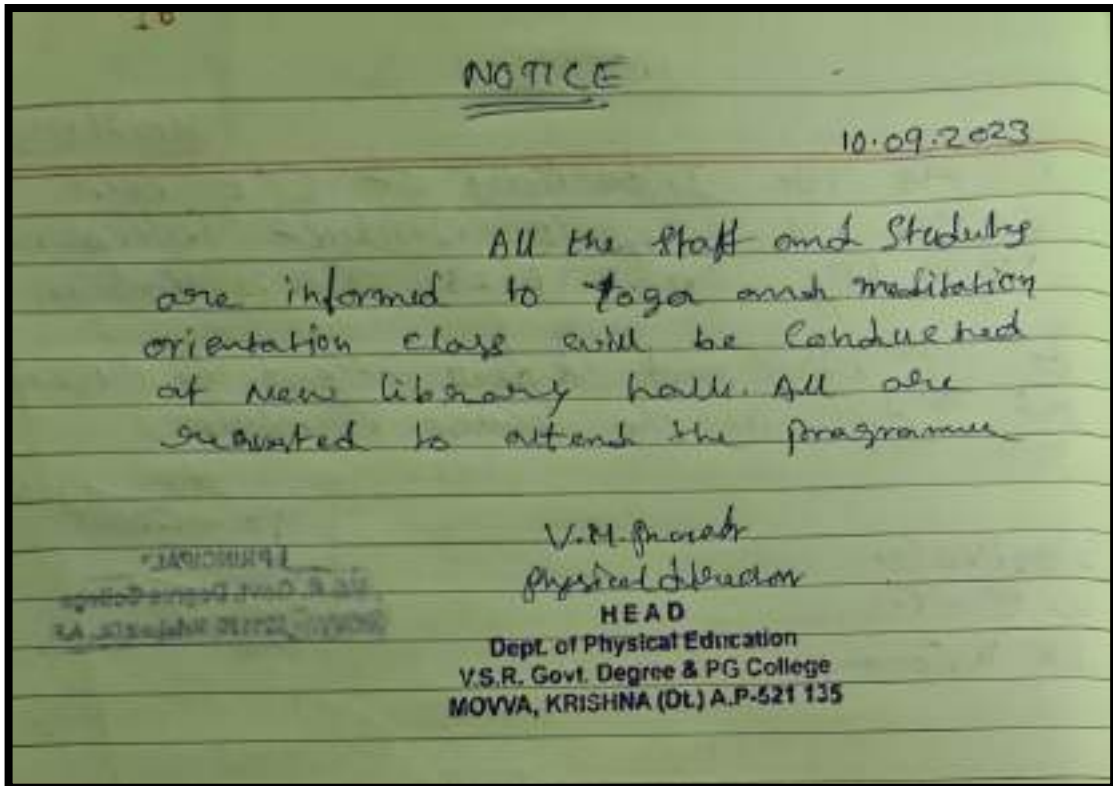 NOTICE
10.09.2023
All the staff and Students
are informed to Yoga and meditation
orientation class will be Conducted
at New library hall. All are
to attend the programme
V.M.
physical director
HEAD
Dept. of Physical Education
V.S.R. Govt. Degree & PG College
MOVVA, KRISHNA (Dt.) A.P-521 135